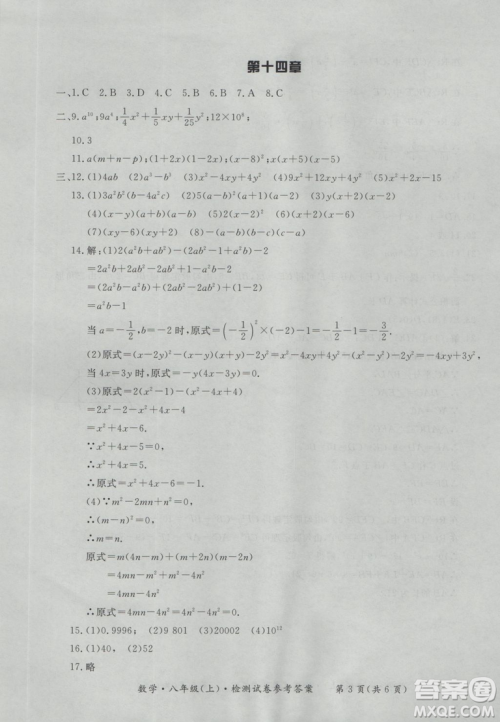 第十四章
一、1.C 2.B 3.D 4.C 5.B 6.B 7.A 8.C
二、9.a¹⁰;9a⁴;1/4x²+1/5xy+1/25y²;12×10⁶;
10.3
11.a(m+n−p);(x−8)(x+8);(x−8)²;x(x+5)
三、12.(1)4ab (2)a²−b² (3)x²−4xy+4y² (4)9x²+12xy+4y² (5)x²+2x−15
13.(1)3a²b²(b−4a²c) (2)5(1−2x)² (3)xy(x+2y)²
(4)(x−y)(a+b)(a−b) (5)(x+y+2)² (6)(x−2y)²
(7)(xy−6)(xy+2) (8)(b−c)(c−a)
14.解:(1)2(a²b+ab²)−(2ab²−1+a²b)−2
=2a²b+2ab²−2ab²+1−a²b−2
=(2a²b−a²b)+(2ab²−2ab²)+(1−2)
=a²b−1
当a=−1/2,b=−2时,原式=(−1/2)²×(−2)−1=−1/2−1=−3/2.
(2)原式=(x−2y)²−(x−y)(x+y)−2y²=x²−4xy+4y²−x²+y²−2y²=−4xy+3y²,
当4x=3y时,原式=y(3y−4x)=0.
(3)原式=2(x²−1)−(x²−4x+4)
=2x²−2−x²+4x−4
=x²+4x−6.
∵x²+4x−6=0,
∴x²+4x=6.
∴原式=0.
(4)∵m²−2mn+n²=0,
∴(m−n)²=0.
∴m=n.
原式=m(4n−m)+n²(2−n)+n²(n−2)
=4mn−m²+2n²−n³+n³−2n²
=4mn−m².
∴原式=4m²−m²=3m².
15.(1)0.9996; (2)9 801 (3)10¹²
16.(1)>;>;>;= (2)略
17.略
数学·八年级(上)·检测试卷参考答案 第3页(共6页)